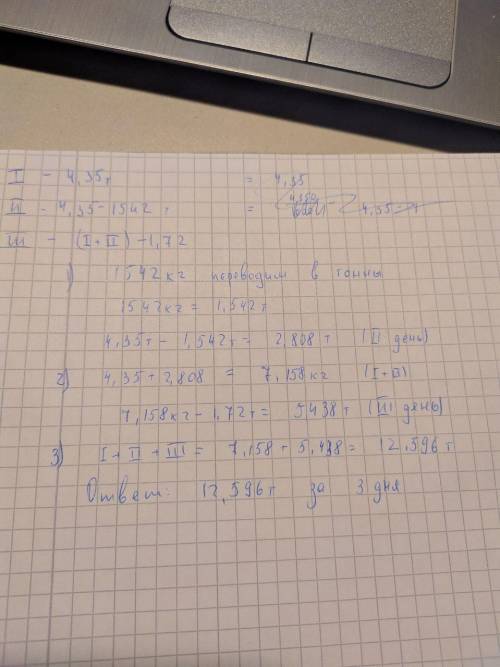 I - 4,35т = 4,35
II - 4,35-1542 =
III - (I+II) -1,72
1) 1542кг переводим в тонны
1542кг = 1,542т
4,35т - 1,542т = 2,808т (II день)
2) 4,35+2,808 = 7,158кг (I+II)
7,158кг - 1,72т = 5438т (III день)
3) I + II + III = 7,158 + 5,438 = 12,596т
Ответ: 12,596т за 3 дня